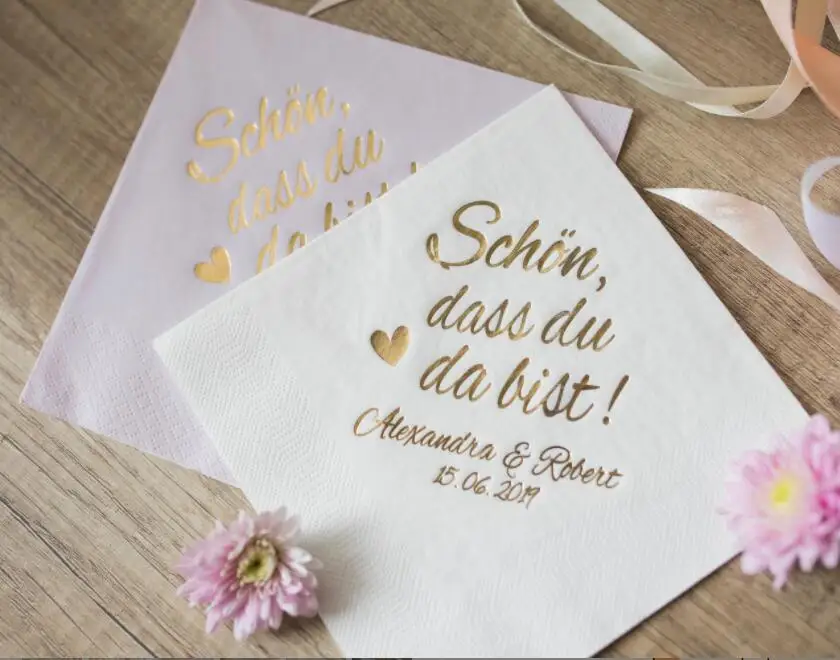 Schön,
dass du
da bist
Schön,
dass du
da bist!
Alexandra & Robert
15.06.2019